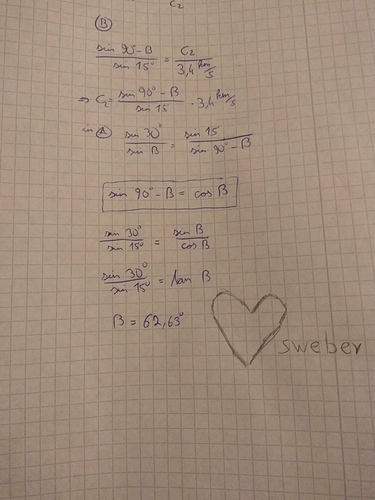 C₂
Ⓑ
sin 90°-B / sin 15° = C₂ / 3,4 km/s
⇒ C₂ = sin 90° - B / sin 15 · 3,4 km/s
in Ⓐ sin 30° / sin B = sin 15° / sin 90° - B
sin 90° - B = cos B
sin 30° / sin 15° = sin B / cos B
sin 30° / sin 15° = tan B
B = 62,63°
sweber